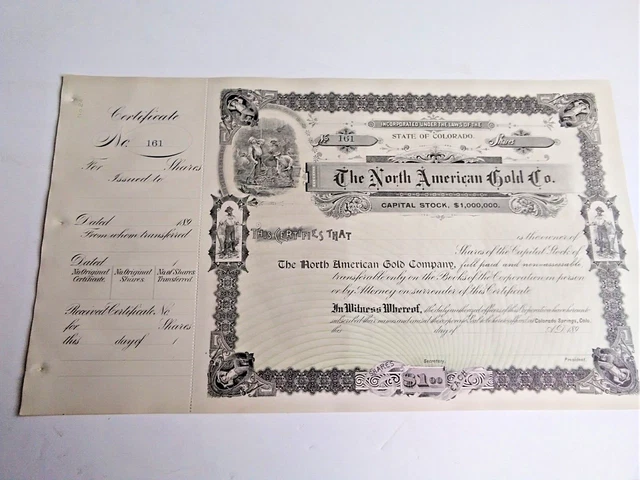 Certificate
No. 161
For Shares
Issued to
Dated 189
From whom transferred
Dated 1
No Original Certificate.
No Original Shares
No of Shares Transferred
Received Certificate No.
for Shares
this day of 1
INCORPORATED UNDER THE LAWS OF THE
STATE OF COLORADO.
161
Shares
The North American Gold Co.
CAPITAL STOCK, $1,000,000.
THIS CERTIFIES THAT
is the owner of
Shares of the Capital Stock of
The North American Gold Company, full paid and non-assessable
transferable only on the Books of the Corporation in person
or by Attorney on surrender of this Certificate.
In Witness Whereof, the duly authorized officers of this Corporation have hereunto
Colorado Springs, Colo.
this day of A.D. 189
Secretary.
President.
SHARES $1.00 EACH